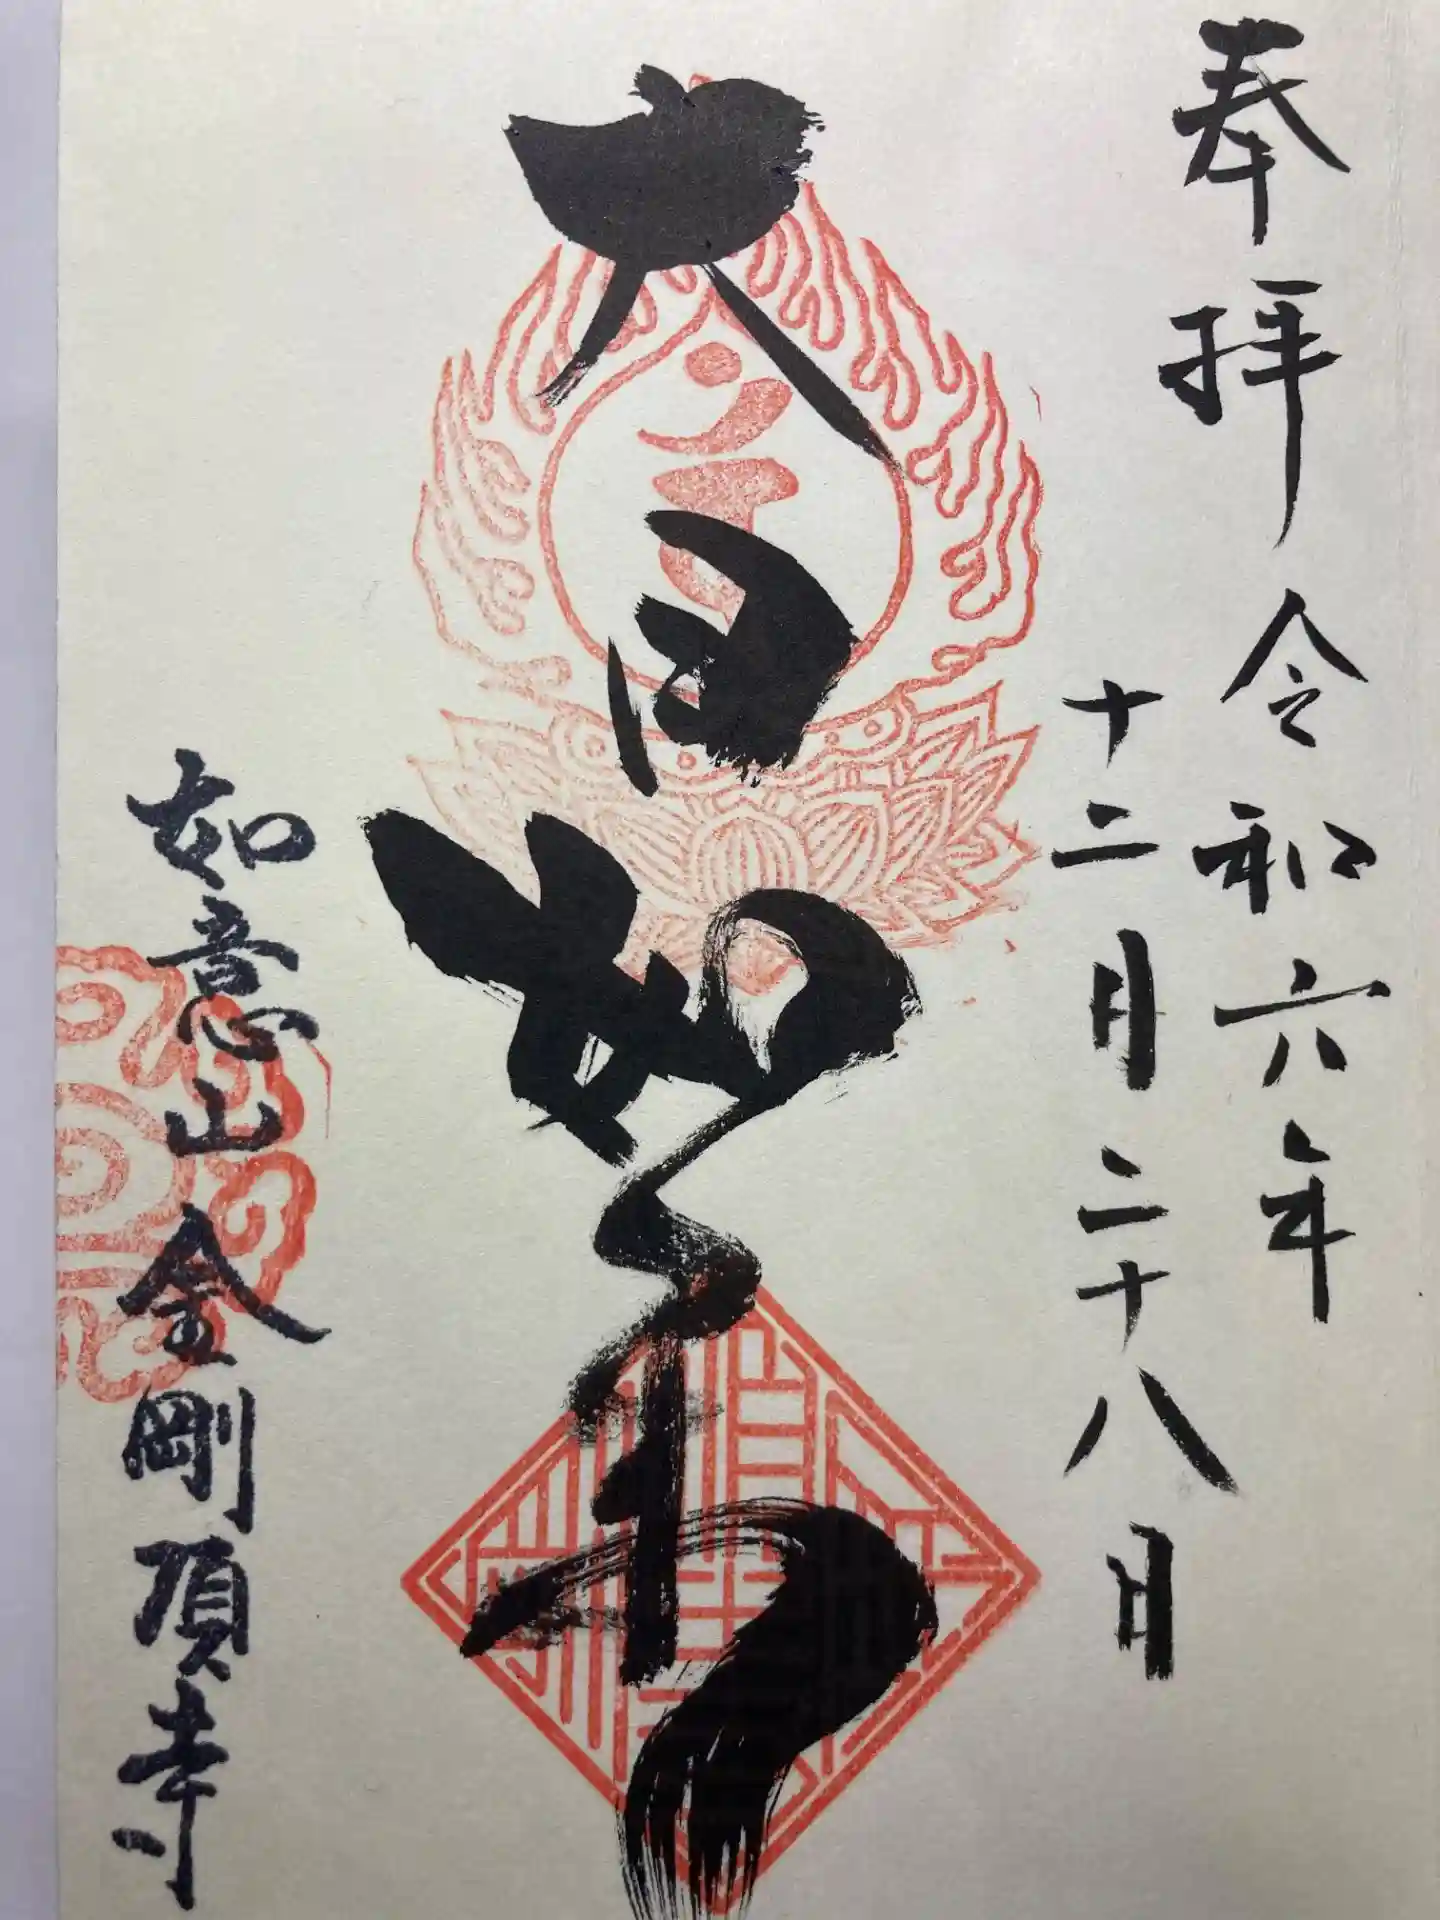 奉拝
令和六年
十二月二十八日
大日如来
如意山 金剛頂寺